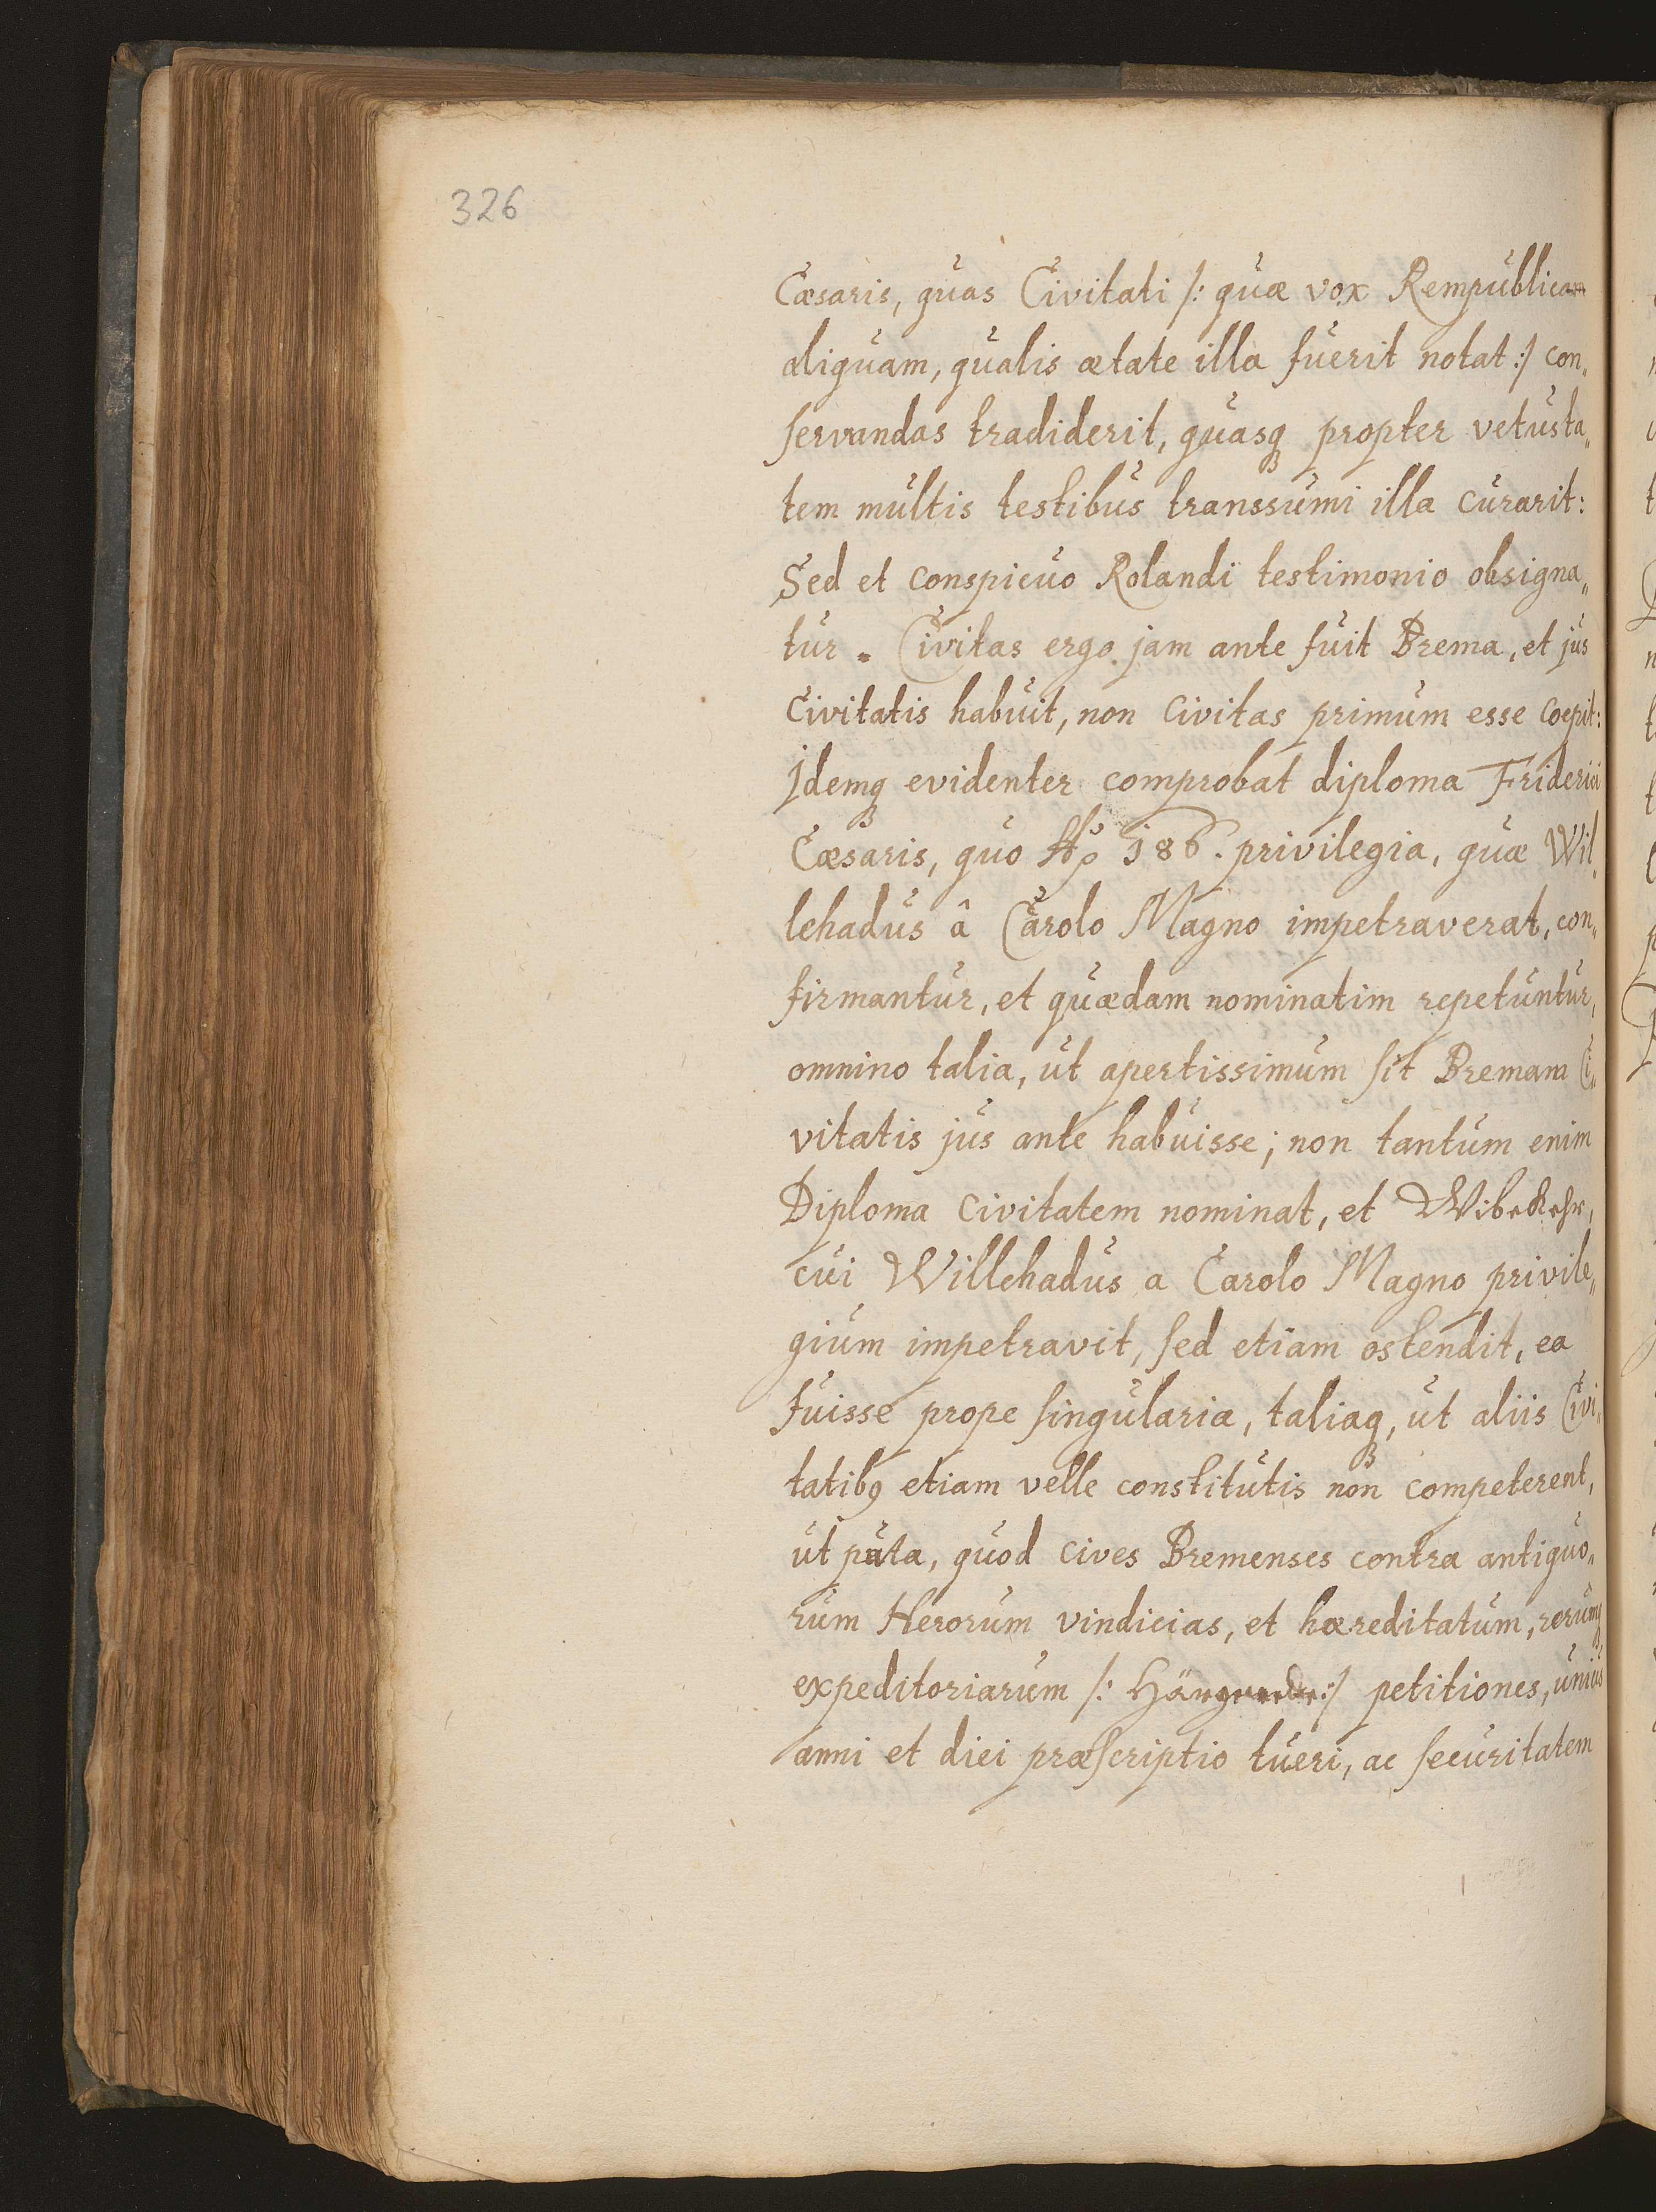 326
Cæsaris, quas Civitati /: quæ vox Rempublicam
aliquam, qualis ætate illa fuerit notat :/ con„
servandas tradiderit, quasq propter vetusta„
tem multis testibus transsumi illa curarit:
Sed et conspicuo Rolandi testimonio obsigna„
tur. Civitas ergo jam ante fuit Brema, et jus
Civitatis habuit, non Civitas primum esse coepit:
Idemq evidenter comprobat diploma Friderici
Cæsaris, quo Aº 186. privilegia, quæ Wil„
lehadus â Carolo Magno impetraverat, con„
firmantur, et quædam nominatim repetuntur,
omnino talia, ut apertissimum sit Bremam Ci„
vitatis jus ante habuisse; non tantum enim
Diploma Civitatem nominat, et
cui Willehadus a Carolo Magno privile„
gium impetravit, sed etiam ostendit, ea
fuisse prope singularia, taliaq, ut aliis Civi„
tatib9 etiam velle constitutis non competerent,
ut puta, quod cives Bremenses contra antiquo„
rum Herorum vindicias, et hæreditatum, rerumq
expeditoriarum /: :/ petitiones, unius
anni et diei præscriptio tueri, ac securitatem